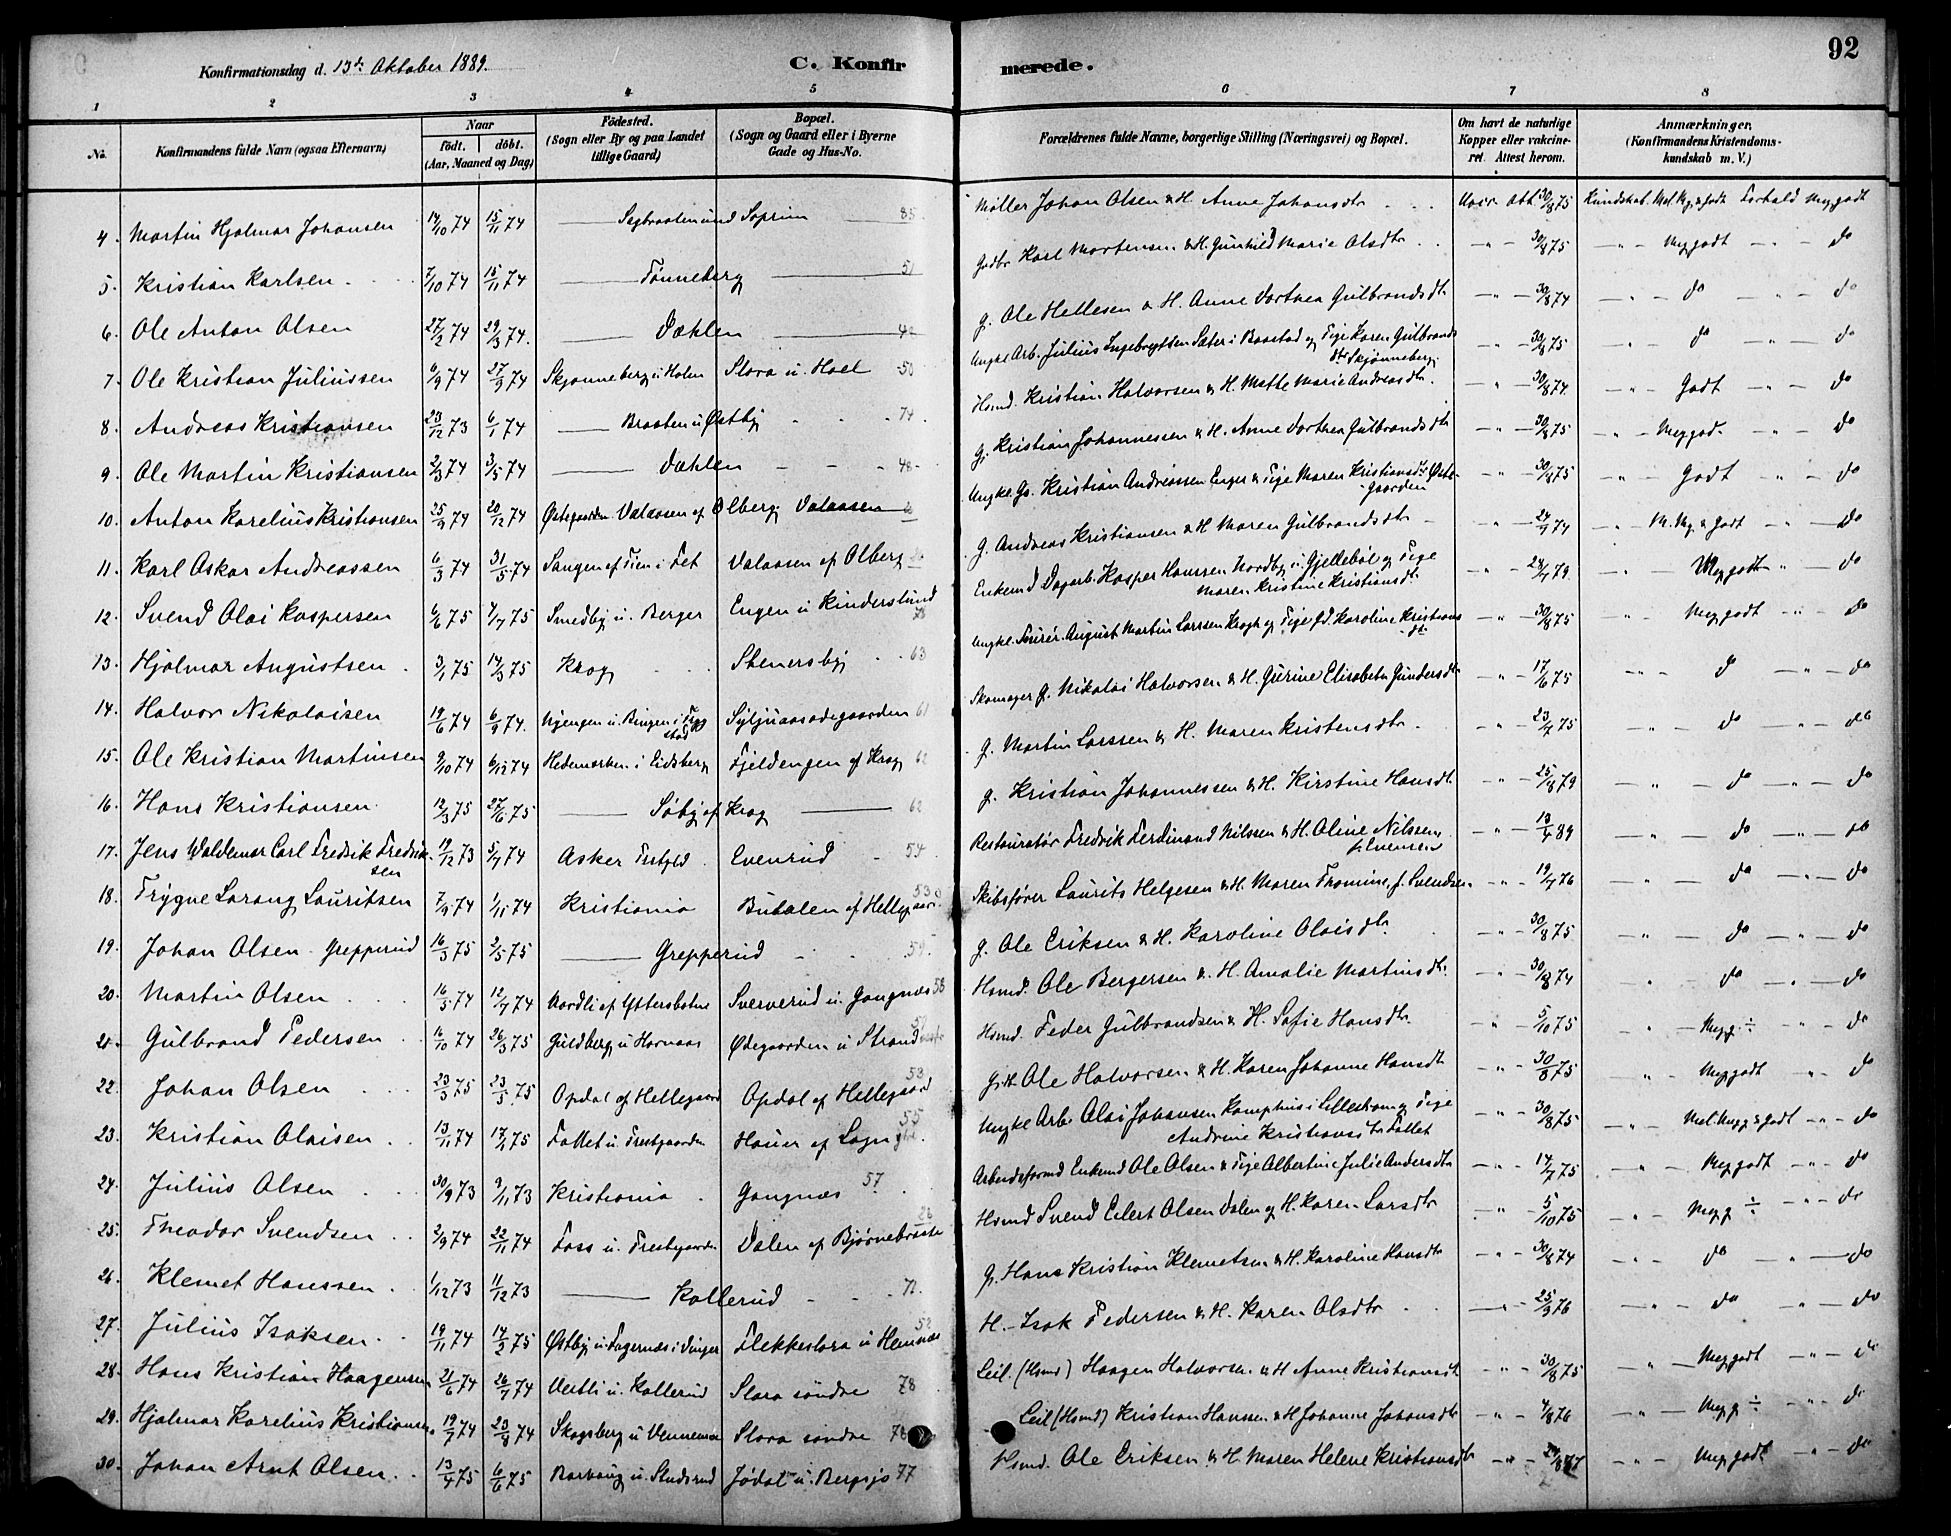 Konfirmationsdag d. 13de Oktober 1889.
C. Konfir
merede.
92
1 2 3 4 5 6 7 8
No. Konfirmandens fulde Navn (ogsaa Efternavn) Naar födt. döbt. (Aar, Maaned og Dag)
Födested. (Sogn eller By og paa Landet tillige Gaard)
Bopæl. (Sogn og Gaard eller i Byerne Gade og Hus-No.
Forældrenes fulde Navne, borgerlige Stilling (Næringsvei) og Bopæl.
Om havt de naturlige Kopper eller vakcineret. Attest herom.
Anmærkninger. (Konfirmandens Kristendomskundskab m. V.)
4. Martin Hjalmar Johansen 14/10 74 15/11 74 Soprim 85 Møller Johan Olsen & H. Anne Johansdtr 30/8 75 Kundskab. Mel. Mg. & Godt Forhold Meg godt
5. Kristian Karlsen 7/10 74 15/11 74 Tønneberg 51 Gaardbr Karl Mortensen & H. Gunhild Marie Olsdtr 30/8 75 Meg godt do
6. Ole Anton Olsen 27/2 74 29/3 74 Dæhlen 48 g. Ole Hellesen & H. Anne Dorthea Gulbrandsdtr 30/8 74 do do
7. Ole Kristian Juliussen 6/9 74 27/9 74 Skjønneberg u. Holm Slora u. Hoel 50 Ungke. Arb. Julius Engebregtsen Sæter i Baastad og Pige Karen Gulbrandsdtr Skjønneberg 30/8 75 do do
8. Andreas Kristiansen 23/12 73 6/1 74 Braaten u Østby 74 Hsmd. Kristian Halvorsen & H. Mathe Marie Andreasdtr. 30/8 74 Godt do
9. Ole Martin Kristiansen 2/3 74 3/5 74 Dæhlen 48 g. Kristian Johannessen & H. Anne Dorthea Gulbrandsdtr 30/8 75 Meg god. do
10. Anton Karelius Kristiansen 25/9 74 20/12 74 Østegaarden Valaasen af Olberg Valaasen Ungke. Gs. Kristian Andreassen Enger & Pige Maren Kristiansdtr Østegaarden 30/8 75 Godt do
11. Karl Oskar Andreassen 6/3 74 31/5 74 Sangen af Tien i Fet Valaasen af Olberg g. Andreas Kristiansen & H Maren Gulbrandsdtr 24/7 74 M. Mg. & Godt do
12. Svend Olai Kaspersen 6/6 75 4/7 75 Smedby u. Berger Engen u Kinderslund Enkemd Dagarb. Kasper Hanssen Nordby u. Gjellebøl og Pige Maren Kristine Kristiansdtr 24/7 79. Meg godt do
13. Hjalmar Augustsen 3/1 75 14/3 75 Krog Stenersby 63 Ungke. Furér. August Martin Larssen Krogh og Pige Karoline Kristiansdtr 30/8 75 Meg godt do
14. Halvor Nikolaisen 19/6 74 6/9 74. Engen u. Bingen i Trøgstad Syljuaasødegaarden 61 Skomager g. Nikolai Halvorsen & H. Gurine Elisabeth Gundersdtr 17/6 75 do do
15. Ole Kristian Martinsen 9/10 74 6/12 74 Hedemarken i Eidsberg Fjeldengen af Krog 62 g. Martin Larssen & H. Maren Kristensdtr 23/7 75 do do
16. Hans Kristiansen 12/3 75 27/6 75 Søby af Krog 62 g. Kristian Johannessen & H. Kirstine Hansdtr 25/8 79 do do
17. Jens Waldemar Carl Fredrik Fredriksen 19/12 73 5/7 74 Asker Prstgld. Evenrud 54. Restauratør Fredrik Ferdinand Nilssen & H. Oline Nilssen, f. Evensen 13/4 89 do do
18. Trygve Sarang Lauritsen 7/9 74 1/11 74 Kristiania Budalen af Hellegaard 53 Skibsfører Laurits Helgesen & H. Maren Thomine, f. Svendsen 19/7 76 do do
19. Johan Olsen Grepperud 16/3 75 2/5 75 Grepperud 59. g. Ole Eriksen & H. Karoline Olaisdtr 30/8 75 do do
20. Martin Olsen 16/5 74 12/7 74 Nordli af Yttersbotne Sververud u. Gangnæs 58 Hsmd. Ole Bergersen & H. Amalie Martinsdtr. 30/8 74 do do
21. Gulbrand Pedersen 16/10 74 26/3 75 Guldberg u Hornaas Ødegaarden u Strand Hsmd. Peder Gulbrandsen & H. Sofie Hansdtr. 5/10 75 Meg g. ÷ do
22. Johan Olsen 23/3 75 23/5 75 Opdal af Hellegaard Opdal af Hellegaard 53 Ole Halvorsen & H. Karen Johanne Hansdtr 30/8 75 Meg godt do
23. Kristian Olaisen 13/11 74 17/1 75 Fallet u. Prestgaarden Hauer af Sogn 55 Ungke Arb. Olai Johansen Kamphus i Lillestrøm og Pige Andrine Kristiansdtr Fallet 30/8 75 Mel. Meg g & godt do
24. Julius Olsen 30/9 73 9/11 73 Kristiania Gangnæs 57. Arbeidsformd Enkemd Ole Olsen & Pige Albertine Julie Andersdtr 14/7 75 Meg godt do
25. Theodor Svendsen 2/9 74 22/11 74 Foss u. Prestgaarden Dalen af Bjørnebraate 26 Hsmd Svend Eilert Olsen Dalen og H. Karen Larsdtr 5/10 75 Meg g ÷ do
26. Klemet Hanssen 1/12 73 11/12 73 Kollerud 72. g. Hans Kristian Klemetsen & H. Karoline Hansdtr 30/8 74 do do
27. Julius Isaksen 19/11 74 14/2 75 Østby u. Fagernæs i Vinger Flekkeslora u Hemnæs 52 H. Isak Pedersen & H. Karen Olsdtr 25/9 76 do do
28. Hans Kristian Haagensen 21/6 74 26/7 74 Vestli u. Kollerud Slora søndre 78 Leil. (Hsmd) Haagen Halvorsen & H Anne Kristiansdtr 30/8 75 Meg godt do
29. Hjalmar Karelius Kristiansen 19/7 74 23/8 74 Skogsberg u Vennemoe Slora søndre 78 Leil (Hsmd) Kristian Hansen & H Johanne Johansdtr 4/8 76 Meg g ÷ do
30. Johan Arnt Olsen 13/4 75 6/6 75 u. Studsrud Jødal u. Bergsjø 77 Hsmd. Ole Eriksen & H. Maren Helene Kristiansdtr Meg godt do